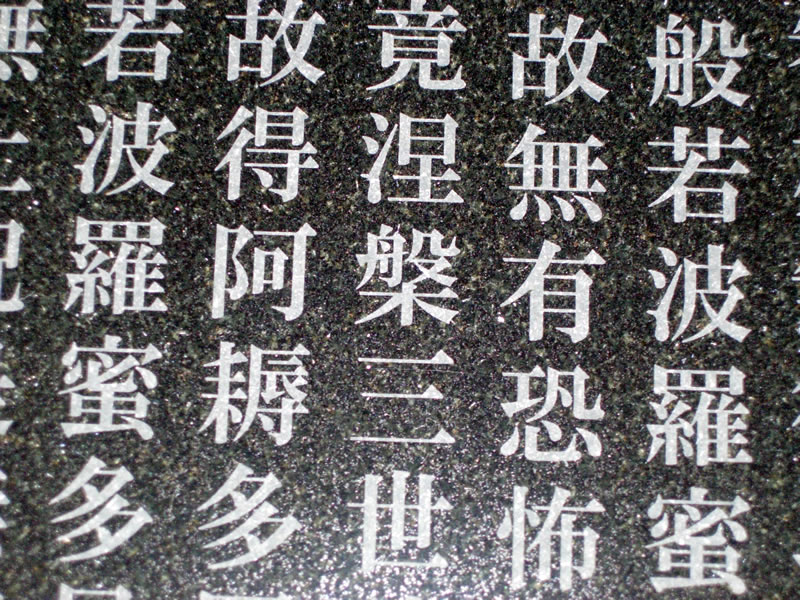 般若波羅蜜
故無有恐怖
竟涅槃三世
故得阿耨多
若波羅蜜多
無上呪